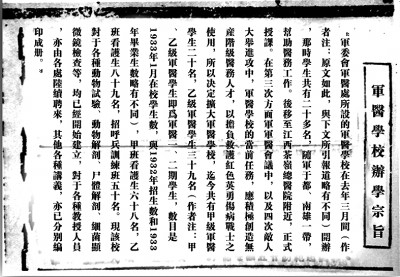 軍醫學校辦學宗旨
“軍委會軍醫處所設的軍醫學校在去年三月間（作
者注：原文如此，與下文所引報道略有不同）開辦
，那時學生共有二十多名，隨軍于于都、南雄一帶，
幫助醫務工作。後移至江西茶嶺總醫院附近，正式
授課。在第三次方面軍軍醫會議中，以及四次敵人
大舉進攻中，軍醫學校的當前任務，應積極創造無
産階級醫務人才，以擔負救護紅色英勇傷病戰士之
使用，所以決定擴大軍醫學校，迄今共有甲級軍醫
學生二十名，乙級軍醫學生三十九名（作者注：甲
、乙級軍醫學生即爲軍醫一、二期學生，數目是
1933年1月在校學生數，與1932年招生數和1933
年畢業生數略有不同）甲班看護生六十八名，乙
班看護生八十九名，招呼兵訓練班五十名。現該校
對于各種動物試驗，動物解剖，尸體解剖，細菌顯
微鏡檢查等，均已經開始建立，對于各種教授人員
，亦由各處陸續聘來，其他各種講義，亦已分別編
印成册。”